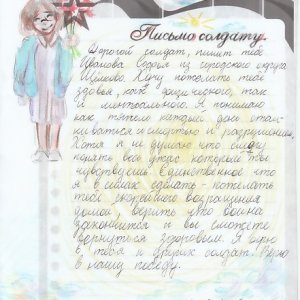 Письмо солдату.
Дорогой солдат, пишет тебе
Иванова София из городского округа
Щёлково. Хочу пожелать тебе
здовья, как физического, так
и минтального. Я понимаю
как тяжело каждый день стал-
киваться я смертью и разрушением.
Хотя я не думаю что смогу
понять весь ужас который ты
чувствуешь. Единственное что
я в силах сделать - пожелать
тебе скорейшего возвращения
домой, верить что война
закончится и вы сможете
вернуться здоровым. Я верю
в тебя и других солдат. Верю
в нашу победу.